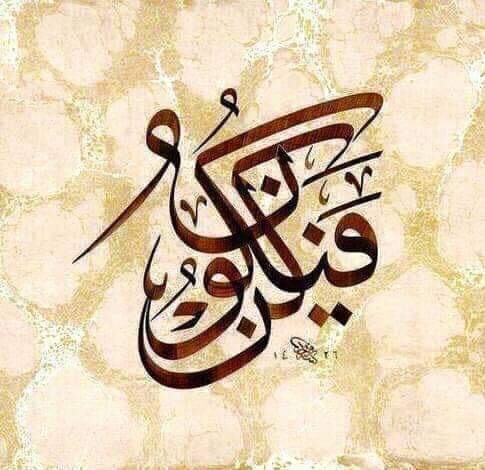 كُنْ فَيَكُونُ
١٤ ٢٦